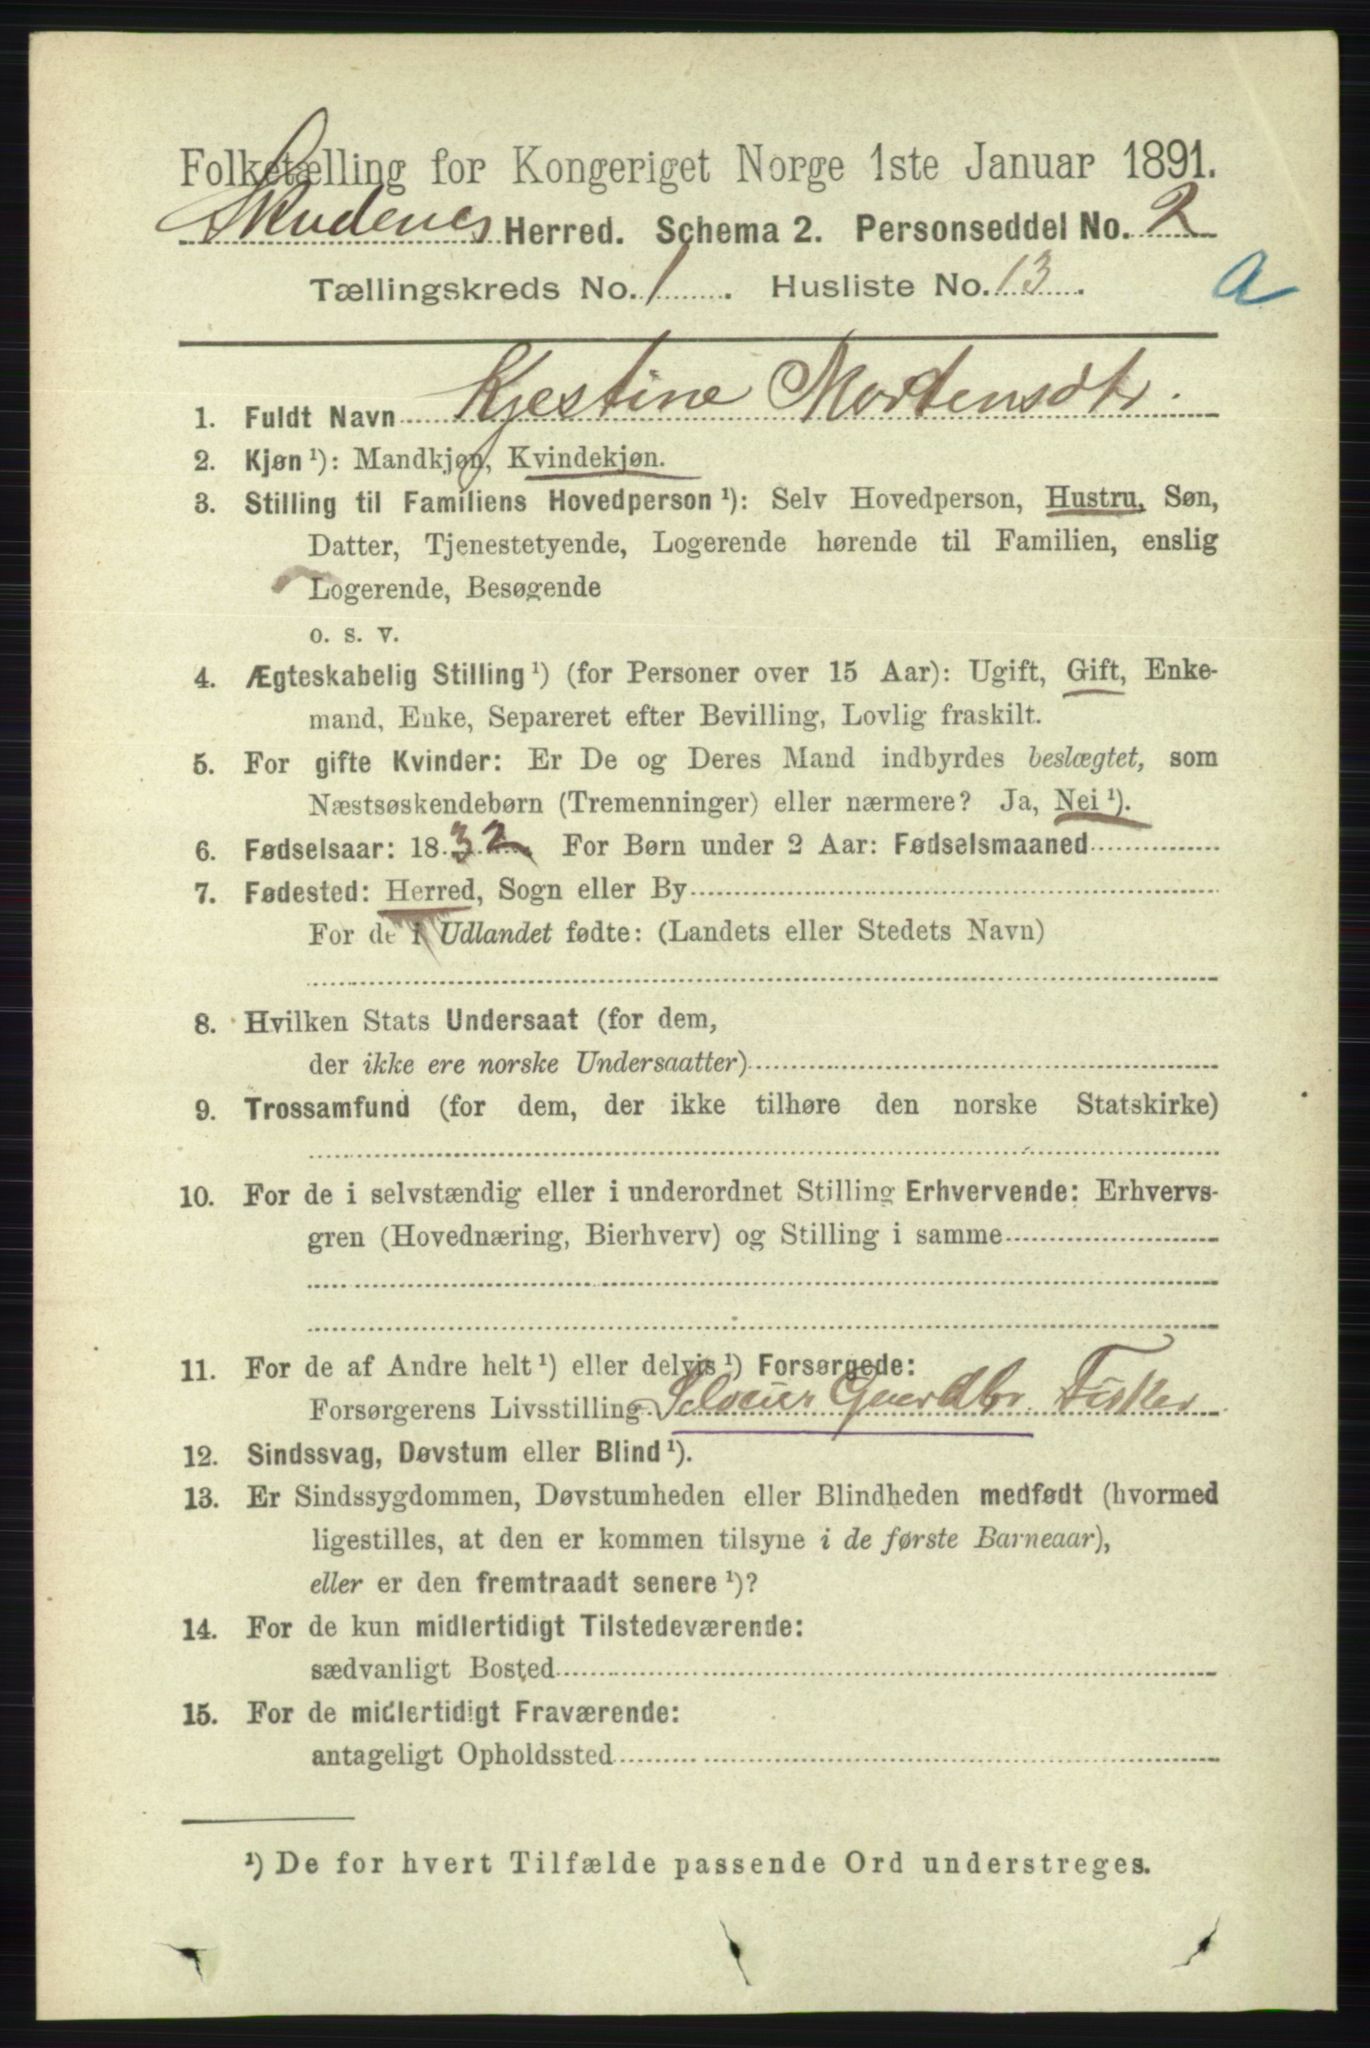 Folketælling for Kongeriget Norge 1ste Januar 1891.
Skudenes Herred. Schema 2. Personseddel No. 2
Tællingskreds No. 1. Husliste No. 13.
a
1. Fuldt Navn Kjestine Mortensdtr.
2. Kjøn ¹): Mandkjøn, Kvindekjøn.
3. Stilling til Familiens Hovedperson ¹): Selv Hovedperson, Hustru, Søn,
Datter, Tjenestetyende, Logerende hørende til Familien, enslig
Logerende, Besøgende
o. s. v.
4. Ægteskabelig Stilling ¹) (for Personer over 15 Aar): Ugift, Gift, Enke-
mand, Enke, Separeret efter Bevilling, Lovlig fraskilt.
5. For gifte Kvinder: Er De og Deres Mand indbyrdes beslægtet, som
Næstsøskendebørn (Tremenninger) eller nærmere? Ja, Nei ¹).
6. Fødselsaar: 1832 For Børn under 2 Aar: Fødselsmaaned
7. Fødested: Herred, Sogn eller By
For de i Udlandet fødte: (Landets eller Stedets Navn)
8. Hvilken Stats Undersaat (for dem,
der ikke ere norske Undersaatter)
9. Trossamfund (for dem, der ikke tilhøre den norske Statskirke)
10. For de i selvstændig eller i underordnet Stilling Erhvervende: Erhvervs-
gren (Hovednæring, Bierhverv) og Stilling i samme
11. For de af Andre helt ¹) eller delvis ¹) Forsørgede:
Forsørgerens Livsstilling Selveier Gaardbr. Fisker
12. Sindssvag, Døvstum eller Blind ¹).
13. Er Sindssygdommen, Døvstumheden eller Blindheden medfødt (hvormed
ligestilles, at den er kommen tilsyne i de første Barneaar),
eller er den fremtraadt senere ¹)?
14. For de kun midlertidigt Tilstedeværende:
sædvanligt Bosted
15. For de midlertidigt Fraværende:
antageligt Opholdssted
¹) De for hvert Tilfælde passende Ord understreges.